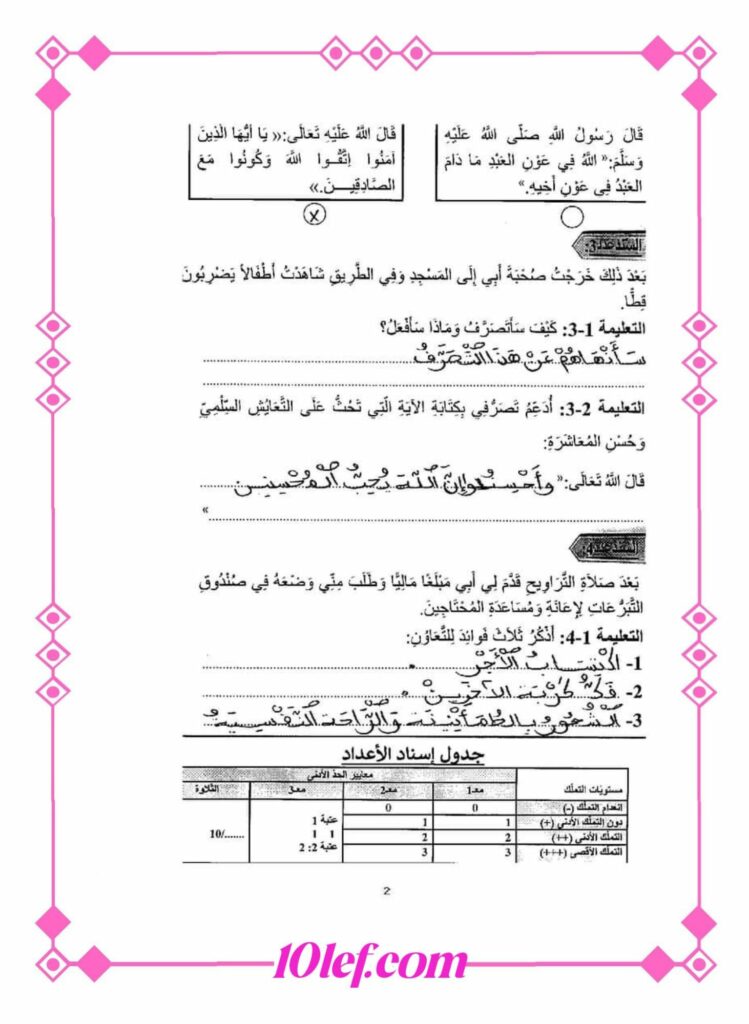 قَالَ رَسُولُ اللهِ صَلَّى اللهُ عَلَيْهِ
وَسَلَّمَ:" اللهُ فِي عَوْنِ العَبْدِ مَا دَامَ
العَبْدُ فِي عَوْنِ أَخِيهِ."
قَالَ اللهُ عَلَيْهِ تَعَالَى:« يَا أَيُّهَا الَّذِينَ
آمَنُوا اِتَّقُوا اللهَ وَكُونُوا مَعَ
الصَّادِقِينَ.»
x
السند عدد3:
بَعْدَ ذَلِكَ خَرَجْتُ صُحْبَةَ أَبِي إِلَى المَسْجِدِ وَفِي الطَّرِيقِ شَاهَدْتُ أَطْفَالاً يَضْرِبُونَ
قِطًّا.
التعليمة 1-3: كَيْفَ سَأَتَصَرَّفُ وَمَاذَا سَأَفْعَلُ؟
سَأَنْهَاهُمْ عَنْ هَذَا التَّصَرُّفُ
التعليمة 2-3: أُدَعِّمُ تَصَرُّفِي بِكِتَابَةِ الآيَةِ الَّتِي تَحُثُّ عَلَى التَّعَايُشِ السِّلْمِيِّ
وَحُسْنِ المُعَاشَرَةِ:
قَالَ اللهُ تَعَالَى:" وَأَحْسِنُوا إِنَّ اللَّهَ يُحِبُّ الْمُحْسِنِينَ
"
السند عدد4:
بَعْدَ صَلاَةِ التَّرَاوِيحِ قَدَّمَ لِي أَبِي مَبْلَغًا مَالِيًّا وَطَلَبَ مِنِّي وَضْعَهُ فِي صُنْدُوقِ
التَّبَرُّعَاتِ لِإِعَانَةِ وَمُسَاعَدَةِ المُحْتَاجِينَ.
التعليمة 1-4: أَذْكُرُ ثَلَاثَ فَوَائِدَ لِلتَّعَاوُنِ:
1- اكْتِسَابُ الْأَجْرِ .
2- فَكُّ كُرْبَةِ الآخَرِينَ .
3- الشُّعُورُ بِالطُّمَأْنِينَةِ وَالرَّاحَةِ النَّفْسِيَّةُ
جدول إسناد الأعداد
مستويات التملك معايير الحد الأدنى
مع1 مع2 مع3 التلاوة
انعدام التملك (-) 0 0
دون التملك الأدنى (+) 1 1 عتبة 1
التملك الأدنى (++) 2 2 1 1 ....../10
التملك الأقصى (+++) 3 3 عتبة 2: 2
2
10lef.com